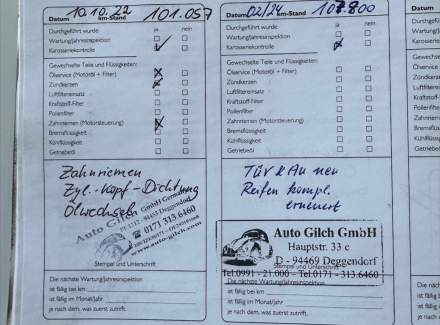 Datum 10.10.22 km-Stand 101.057
Durchgeführt wurde: ja nein
Wartung/Jahresinspektion
Karosseriekontrolle
Gewechselte Teile und Flüssigkeiten:
Ölservice (Motoröl + Filter)
Zündkerzen
Luftfiltereinsatz
Kraftstoff-Filter
Pollenfilter
Zahnriemen (Motorsteuerung)
Bremsflüssigkeit
Kühlflüssigkeit
Getriebeöl
Zahnriemen
Zyl.-Kopf-Dichtung
Ölwechsel
Auto Gilch GmbH
94453 Deggendorf
0171 313 6460
Stempel und Unterschrift
Die nächste Wartung/Jahresinspektion
ist fällig bei km
ist fällig im Monat/Jahr
je nach dem, was zuerst zutrifft.
Datum 02/24 km-Stand 107.800
Durchgeführt wurde: ja nein
Wartung/Jahresinspektion
Karosseriekontrolle
Gewechselte Teile und Flüssigkeiten:
Ölservice (Motoröl + Filter)
Zündkerzen
Luftfiltereinsatz
Kraftstoff-Filter
Pollenfilter
Zahnriemen (Motorsteuerung)
Bremsflüssigkeit
Kühlflüssigkeit
Getriebeöl
TÜV & Au neu
Reifen kompl.
erneuert
Auto Gilch GmbH
Hauptstr. 33 c
D - 94469 Deggendorf
Stempel und Unterschrift
Tel.0991 - 21.000 - Tel.0171 - 313.6460
Die nächste Wartung/Jahresinspektion
ist fällig bei km
ist fällig im Monat/Jahr
je nach dem, was zuerst zutrifft.
Datum
Durchgeführt
Wartung/Jahr
Karosserieko
Gewechselte
Ölservice
Zündkerzen
Luftfilter
Kraftstoff
Pollenfilter
Zahnriemen
Bremsflüssig
Kühlflüssig
Getriebeöl
Die näch
ist fällig
ist fällig
je nach